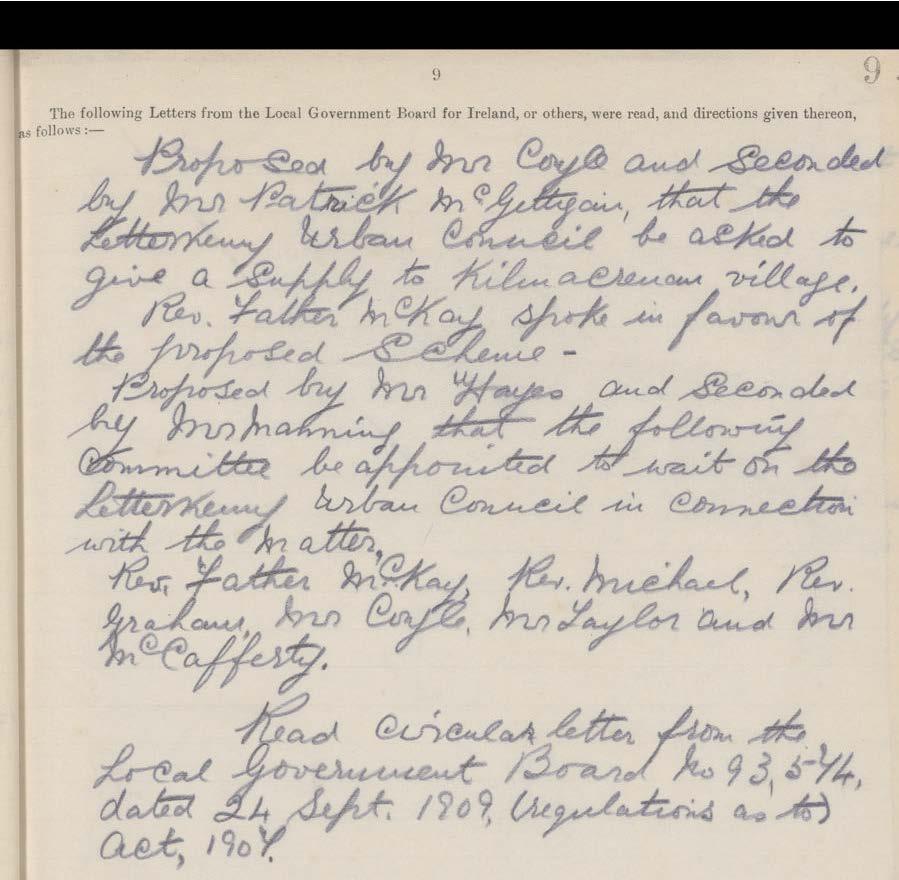 9
9
The following Letters from the Local Government Board for Ireland, or others, were read, and directions given thereon,
as follows :—
Proposed by Mr Coyle and Seconded
by Mr Patrick McGettigan, that the
Letterkenny Urban Council be asked to
give a Supply to Kilmacrenan village.
Rev. Father McKay spoke in favour of
the proposed Scheme -
Proposed by Mr Hayes and Seconded
by Mr Manning that the following
Committee be appointed to wait on the
Letterkenny Urban Council in connection
with the Matter,
Rev. Father McKay, Rev. Michael, Rev.
Graham, Mr Coyle, Mr Taylor and Mr
McCafferty.
Read circular letter from the
Local Government Board No
dated 24 Sept. 1909, (regulations as to)
Act, 1907.